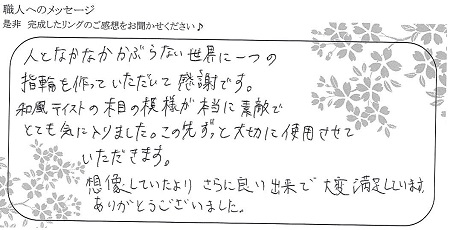 職人へのメッセージ
是非 完成したリングのご感想をお聞かせください♪
人となかなかかぶらない世界に一つの
指輪を作っていただいて感謝です。
和風テイストの木目の模様が本当に素敵で
とても気に入りました。この先ずっと大切に使用させて
いただきます。
想像していたよりさらに良い出来で大変満足しています。
ありがとうございました。